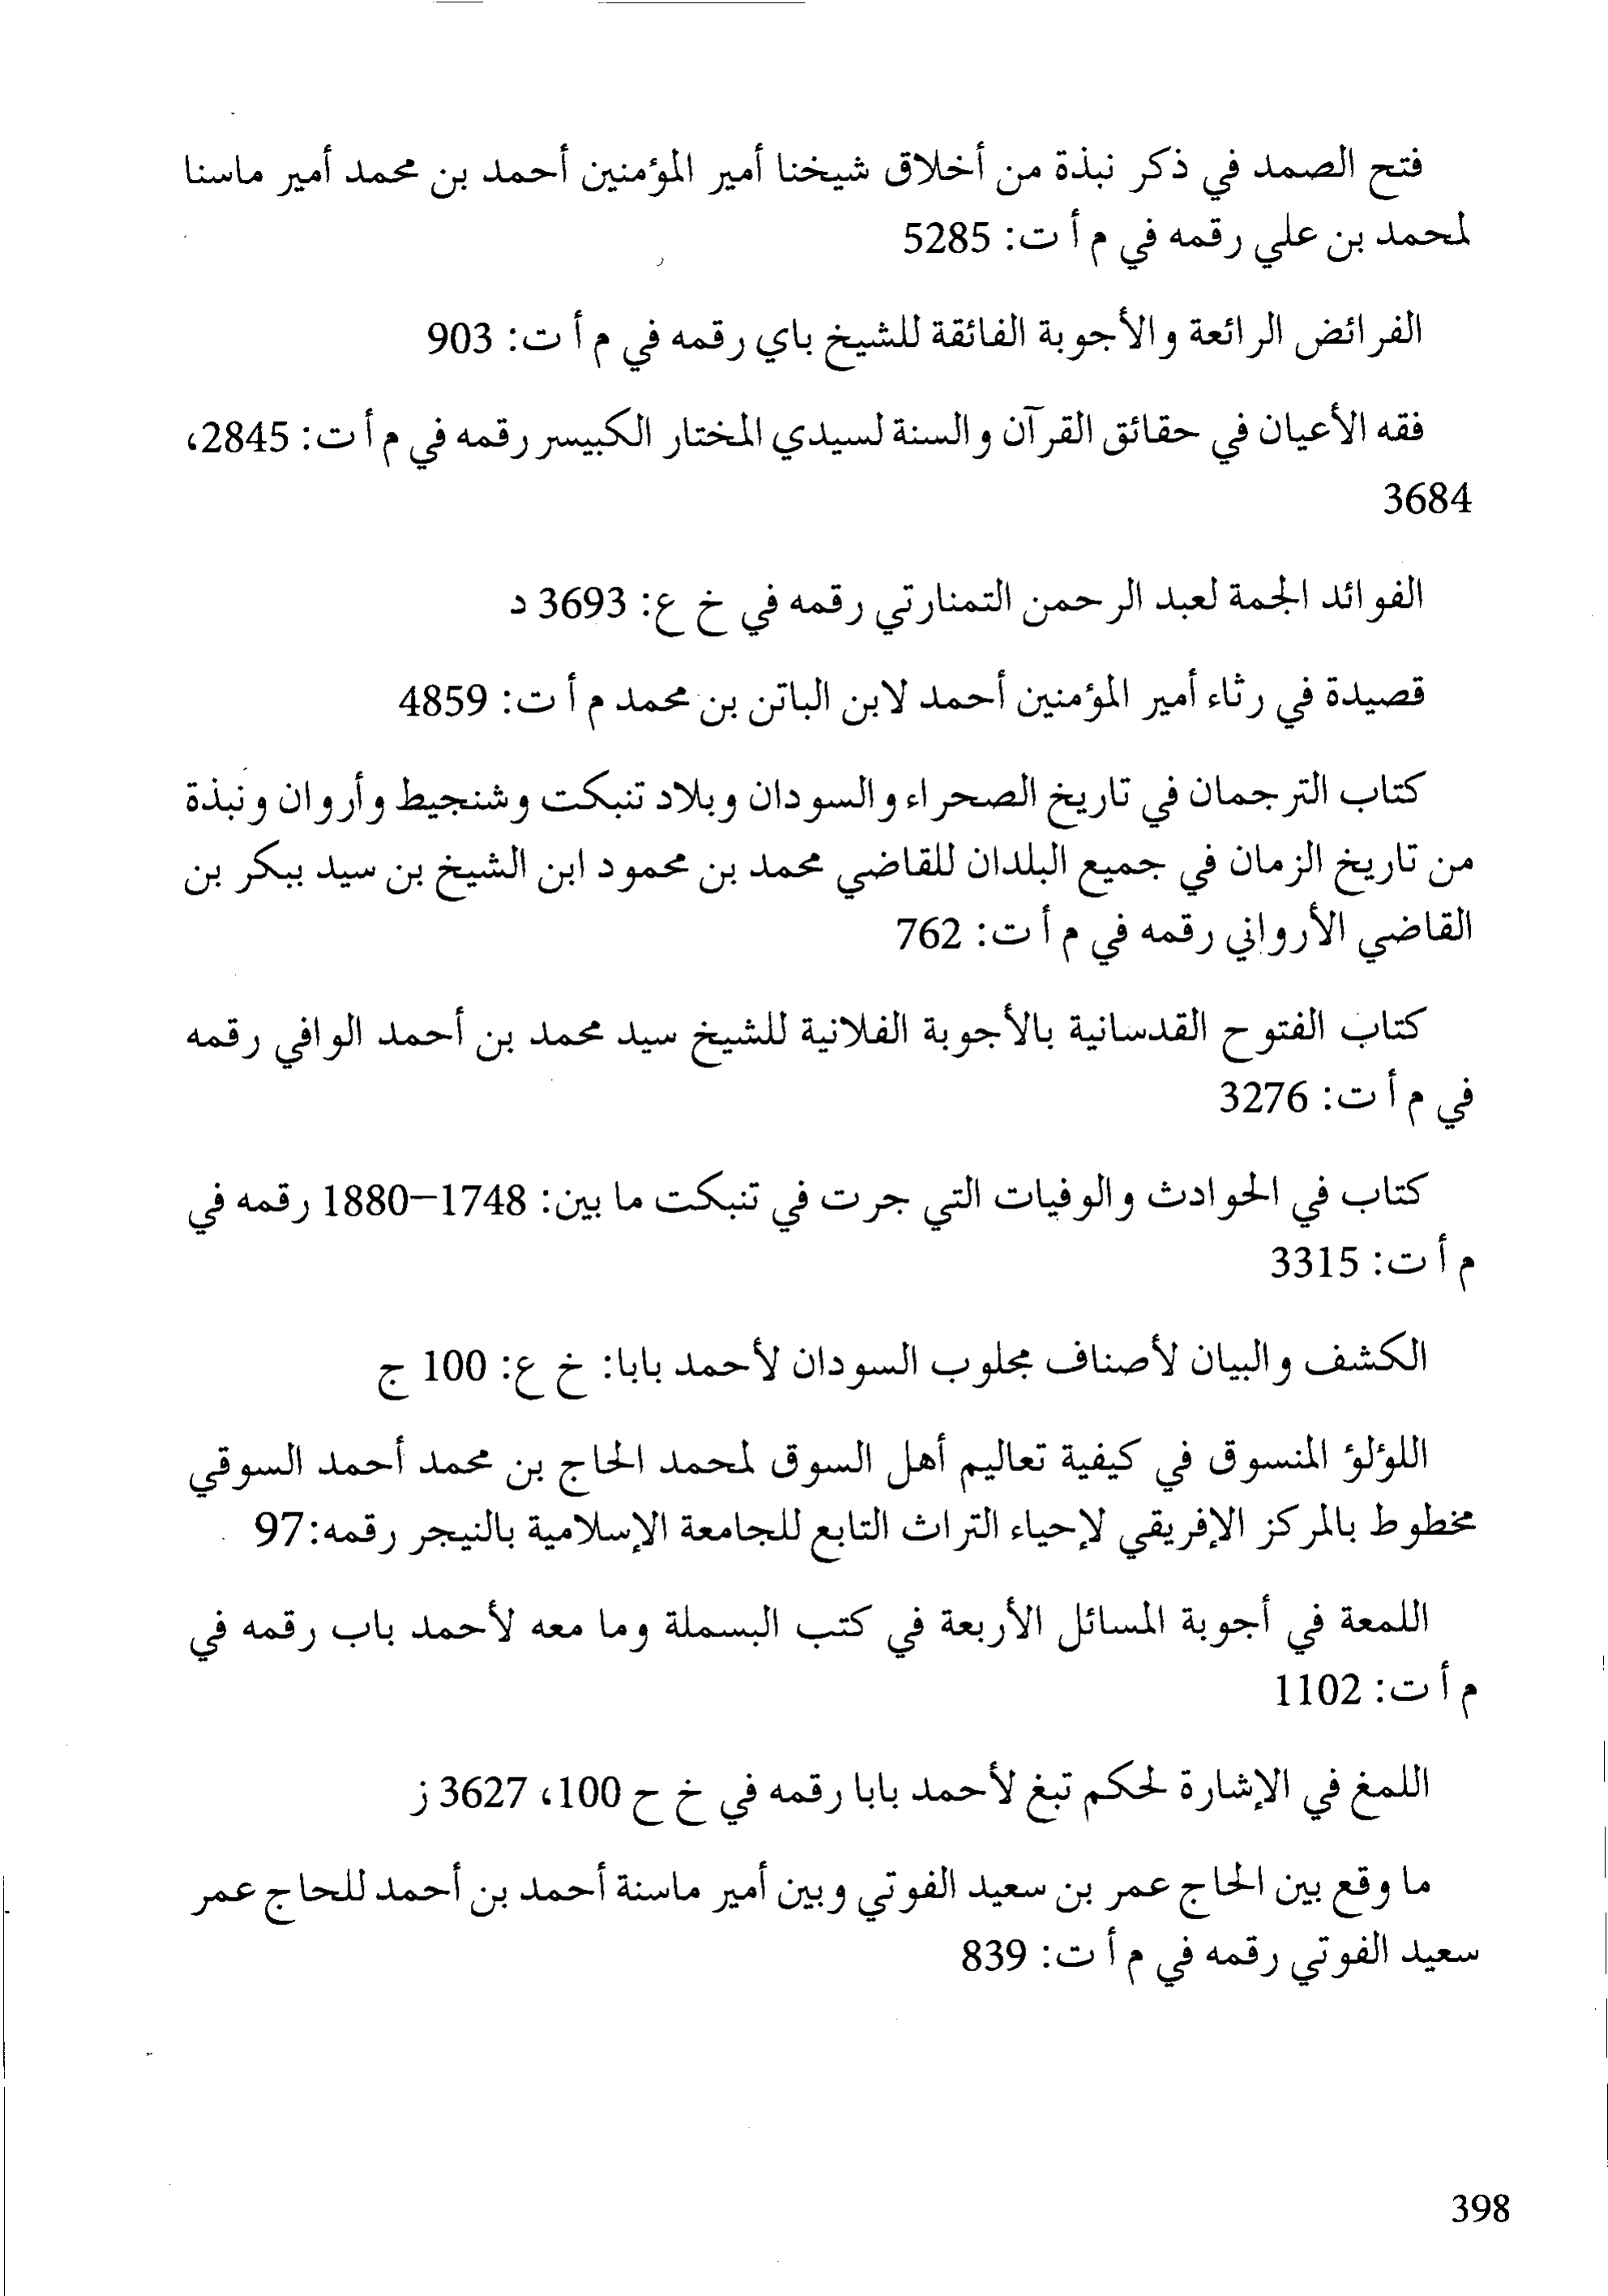 فتح الصمد في ذكر نبذة من أخلاق شيخنا أمير المؤمنين أحمد بن محمد أمير ماسنا
لمحمد بن علي رقمه في م أ ت: 5285
الفرائض الرائعة والأجوبة الفائقة للشيخ باي رقمه في م أ ت: 903
فقه الأعيان في حقائق القرآن والسنة لسيدي المختار الكبيسر رقمه في م أ ت: 2845،
3684
الفوائد الجمة لعبد الرحمن التمنارتي رقمه في خ ع: 3693 د
قصيدة في رثاء أمير المؤمنين أحمد لابن الباتن بن محمد م أ ت: 4859
كتاب الترجمان في تاريخ الصحراء والسودان وبلاد تنبكت وشنجيط وأروان ونبذة
من تاريخ الزمان في جميع البلدان للقاضي محمد بن محمود ابن الشيخ بن سيد ببكر بن
القاضي الأرواني رقمه في م أ ت: 762
كتاب الفتوح القدسانية بالأجوبة الفلانية للشيخ سيد محمد بن أحمد الوافي رقمه
في م أ ت: 3276
كتاب في الحوادث والوفيات التي جرت في تنبكت ما بين: 1748–1880 رقمه في
م أ ت: 3315
الكشف والبيان لأصناف مجلوب السودان لأحمد بابا: خ ع: 100 ج
اللؤلؤ المنسوق في كيفية تعاليم أهل السوق لمحمد الحاج بن محمد أحمد السوقي
مخطوط بالمركز الإفريقي لإحياء التراث التابع للجامعة الإسلامية بالنيجر رقمه:97
اللمعة في أجوبة المسائل الأربعة في كتب البسملة وما معه لأحمد باب رقمه في
م أ ت: 1102
اللمغ في الإشارة لحكم تبغ لأحمد بابا رقمه في خ ح 100، 3627 ز
ما وقع بين الحاج عمر بن سعيد الفوتي وبين أمير ماسنة أحمد بن أحمد للحاج عمر
سعيد الفوتي رقمه في م أ ت: 839
398